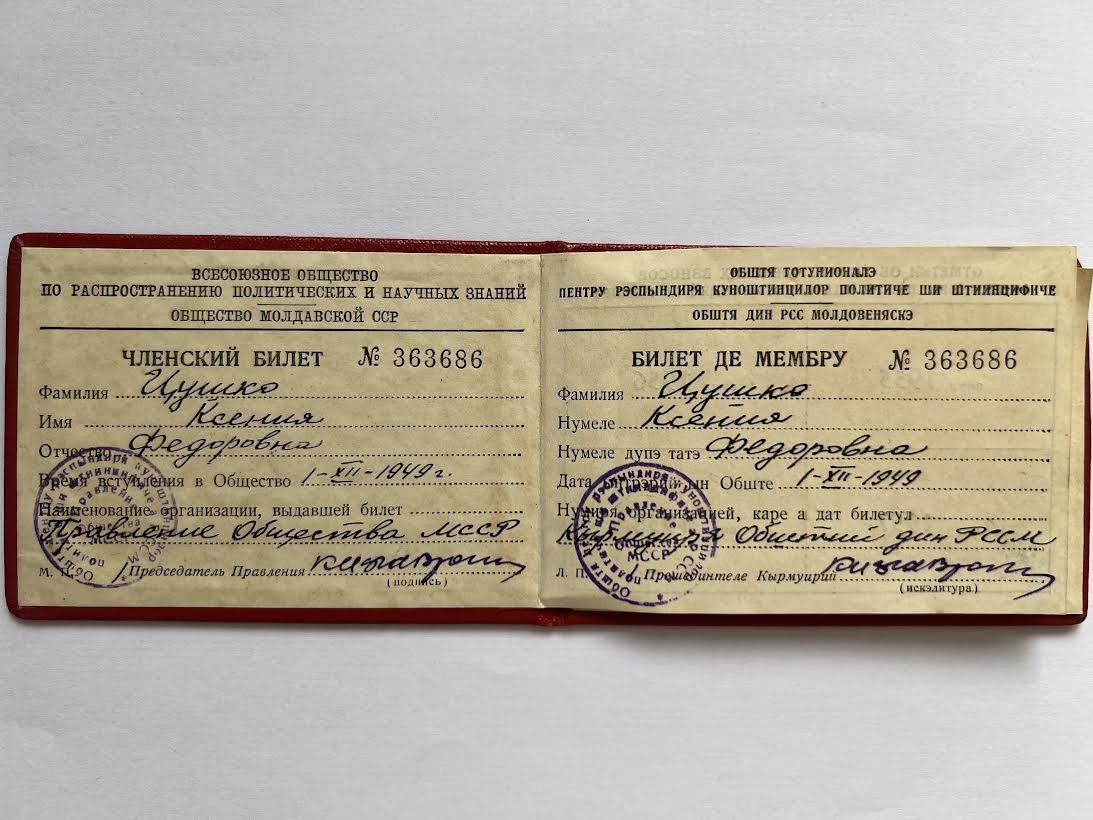 ВСЕСОЮЗНОЕ ОБЩЕСТВО
ПО РАСПРОСТРАНЕНИЮ ПОЛИТИЧЕСКИХ И НАУЧНЫХ ЗНАНИЙ
ОБЩЕСТВО МОЛДАВСКОЙ ССР
ЧЛЕНСКИЙ БИЛЕТ № 363686
Фамилия Цушко
Имя Ксения
Отчество Федоровна
Время вступления в Общество 1-XII-1949 г.
Наименование организации, выдавшей билет
Правление Общества МССР
М. П. Председатель Правления
(подпись)
ОБШТЯ ТОТУНИОНАЛЭ
ПЕНТРУ РЭСПЫНДИРЯ КУНОШТИНЦИЛОР ПОЛИТИЧЕ ШИ ШТИИНЦИФИЧЕ
ОБШТЯ ДИН РСС МОЛДОВЕНЯСКЭ
БИЛЕТ ДЕ МЕМБРУ № 363686
Фамилия Цушко
Нумеле Ксения
Нумеле дупэ татэ Федоровна
Дата интрэрий ын Обште 1-XII-1949
Нумиря организацией, каре а дат билетул
Кырмуиря Обштий дин РССМ
Л. П. Прешединтеле Кырмуирий
(искэлитура)